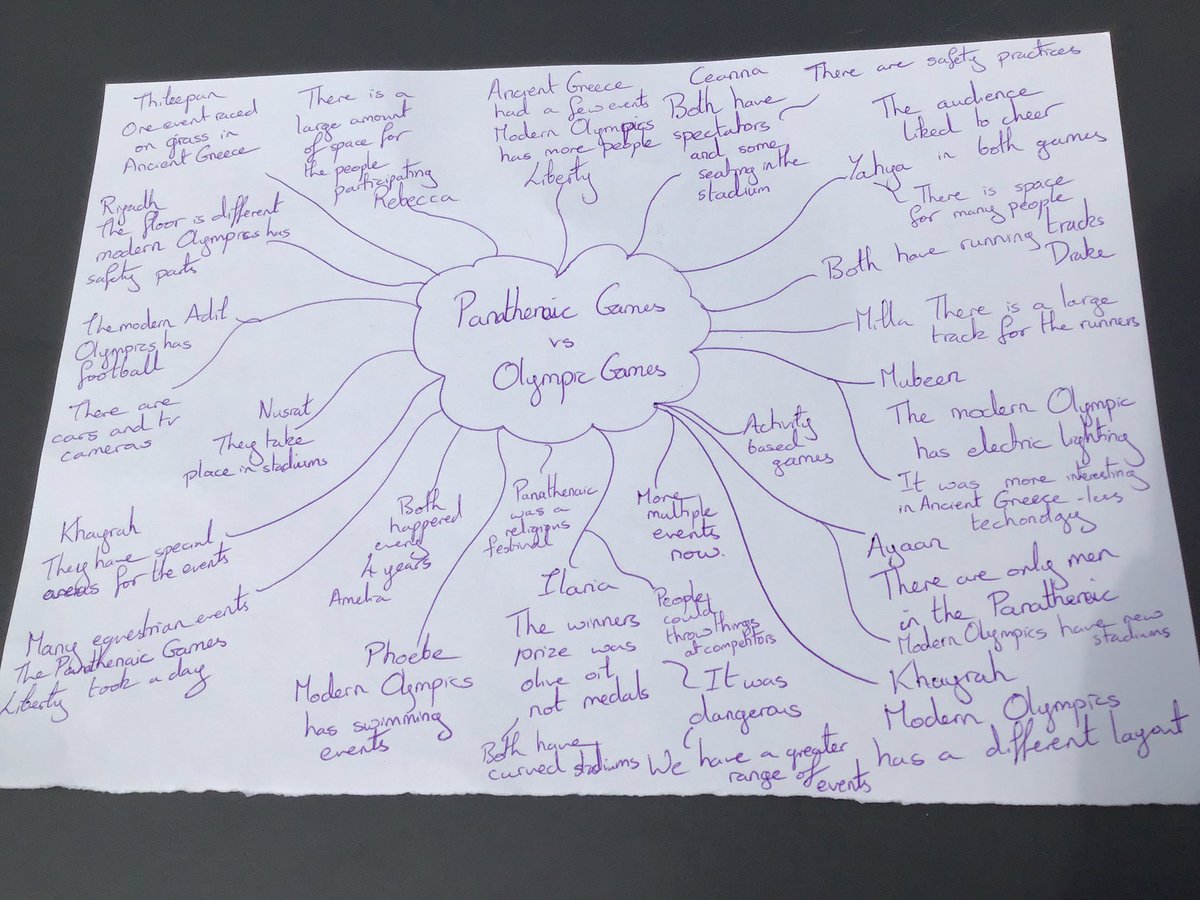 Panathenaic Games
vs
Olympic Games
Thileepan
One event raced
on grass in
Ancient Greece
There is a
large amount
of space for
the people
participating
Rebecca
Ancient Greece
had a few events
Modern Olympics
has more people
Liberty
Ceanna
Both have
spectators
and some
seating in the
stadium
There are safety practices
The audience
liked to cheer
Yahya in both games
There is space
for many people
Both have running tracks
Drake
Milla There is a large
track for the runners
Mubeen
The modern Olympic
has electric lighting
It was more interesting
in Ancient Greece - less
techondogy
Activity
based
games
Ayaan
There are only men
in the Panathenaic
Modern Olympics have new
stadiums
Khayrah
Modern Olympics
has a different layout
More
multiple
events
now.
People
could
throw things
at competitors
It was
dangerous
We have a greater
range of events
Ilaria
The winners
prize was
olive oil
not medals
Both have
curved stadiums
Panathenaic
was a
religious
festival
Phoebe
Modern Olympics
has swimming
events
Both
happened
every
4 years
Amelia
Many equestrian events
The Panathenaic Games
Liberty took a day
Khayrah
They have special
areas for the events
Nusrat
They take
place in stadiums
The modern Adil
Olympics has
football
There are
cars and tv
cameras
Riyadh
The floor is different
modern Olympics has
safety parts